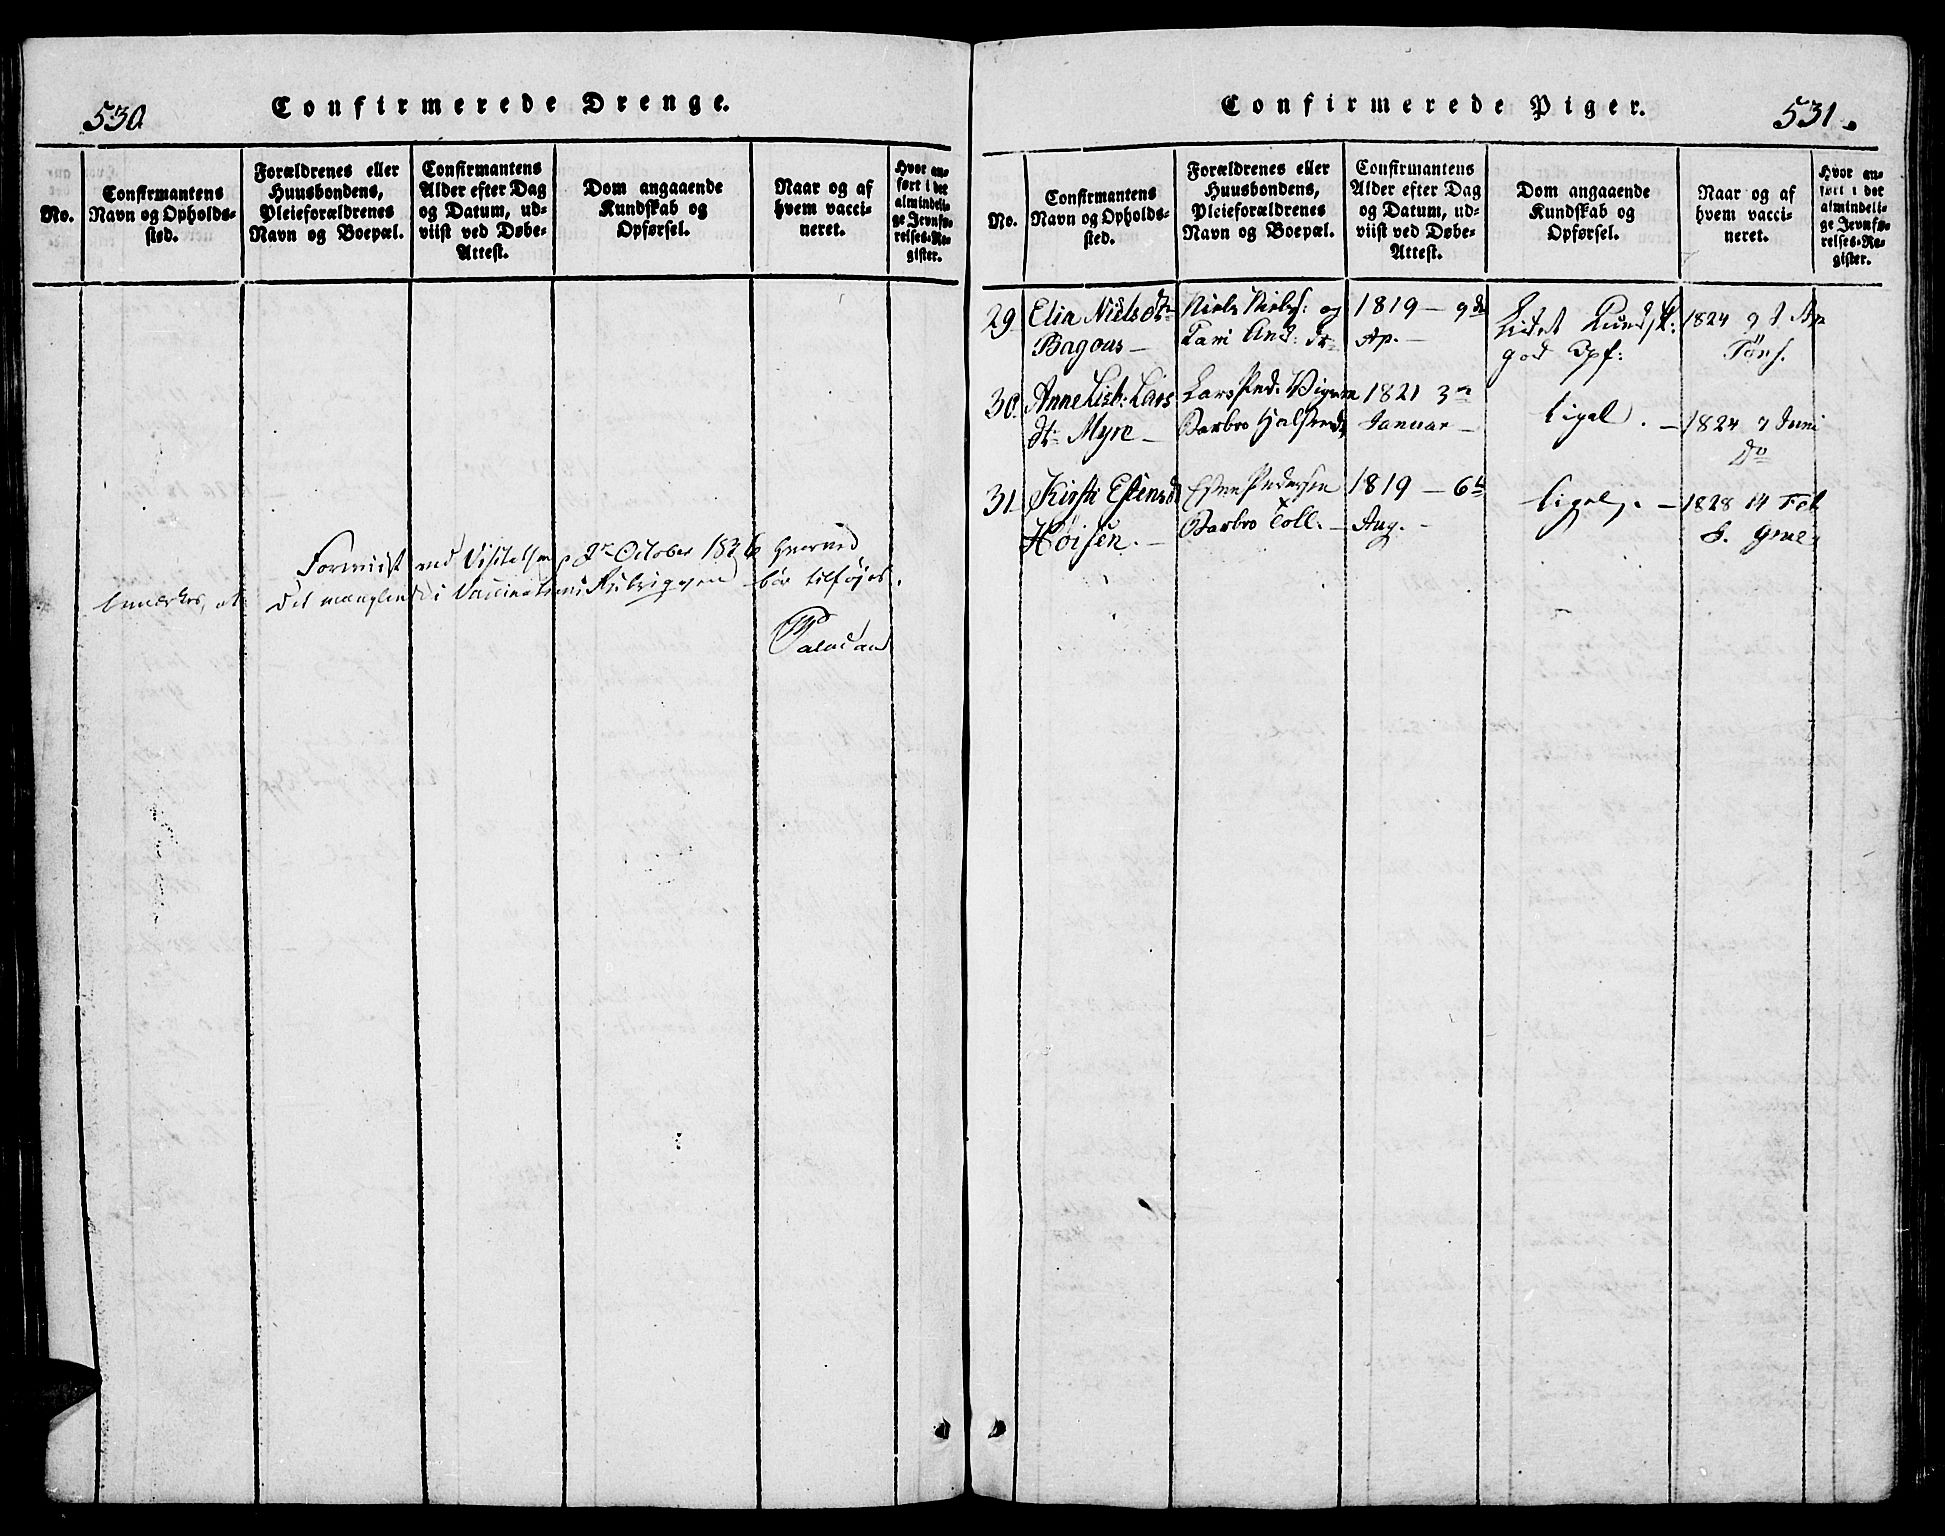 530
Confirmerede Drenge.
No.
Confirmantens
Navn og Opholds-
sted.
Forældrenes eller
Huusbondens,
Pleieforældrenes
Navn og Boepæl.
Confirmantens
Alder efter Dag
og Datum, ud-
viist ved Døbe-
Attest.
Dom angaaende
Kundskab og
Opførsel.
Naar og af
hvem vacci-
neret.
Hvor an-
ført i det
almindeli-
ge Jevnfø-
relses-Re-
gister.
Foreviist ved Visitatsen October 1836 hvorved
bemærkes, at det manglende i Vaccinations Rubriqven bør tilføjes.
531.
Confirmerede Piger.
No.
Confirmantens
Navn og Opholds-
sted.
Forældrenes eller
Huusbondens,
Pleieforældrenes
Navn og Boepæl.
Confirmantens
Alder efter Dag
og Datum, ud-
viist ved Døbe-
Attest.
Dom angaaende
Kundskab og
Opførsel.
Naar og af
hvem vacci-
neret.
Hvor an-
ført i det
almindeli-
ge Jevnfø-
relses-Re-
gister.
29 Elia Niels dtr Niels Niels: og 1819 — 9de Lidet Kundsk: 1824 9 d
Bagaas — Kari And: dtr Ap. — god Opf: Tøns.
30 Anne Lisb: Lars Lars Ped: 1821 3die ligel. — 1824 7 Juni
dtr Myre — Barbro Halstensd Januar — do
31 Kirsti Estensd Esten Pedersen 1819 — 6te ligel. — 1828 14 Feb
Høisen. — Barbro Toll. — Aug. —